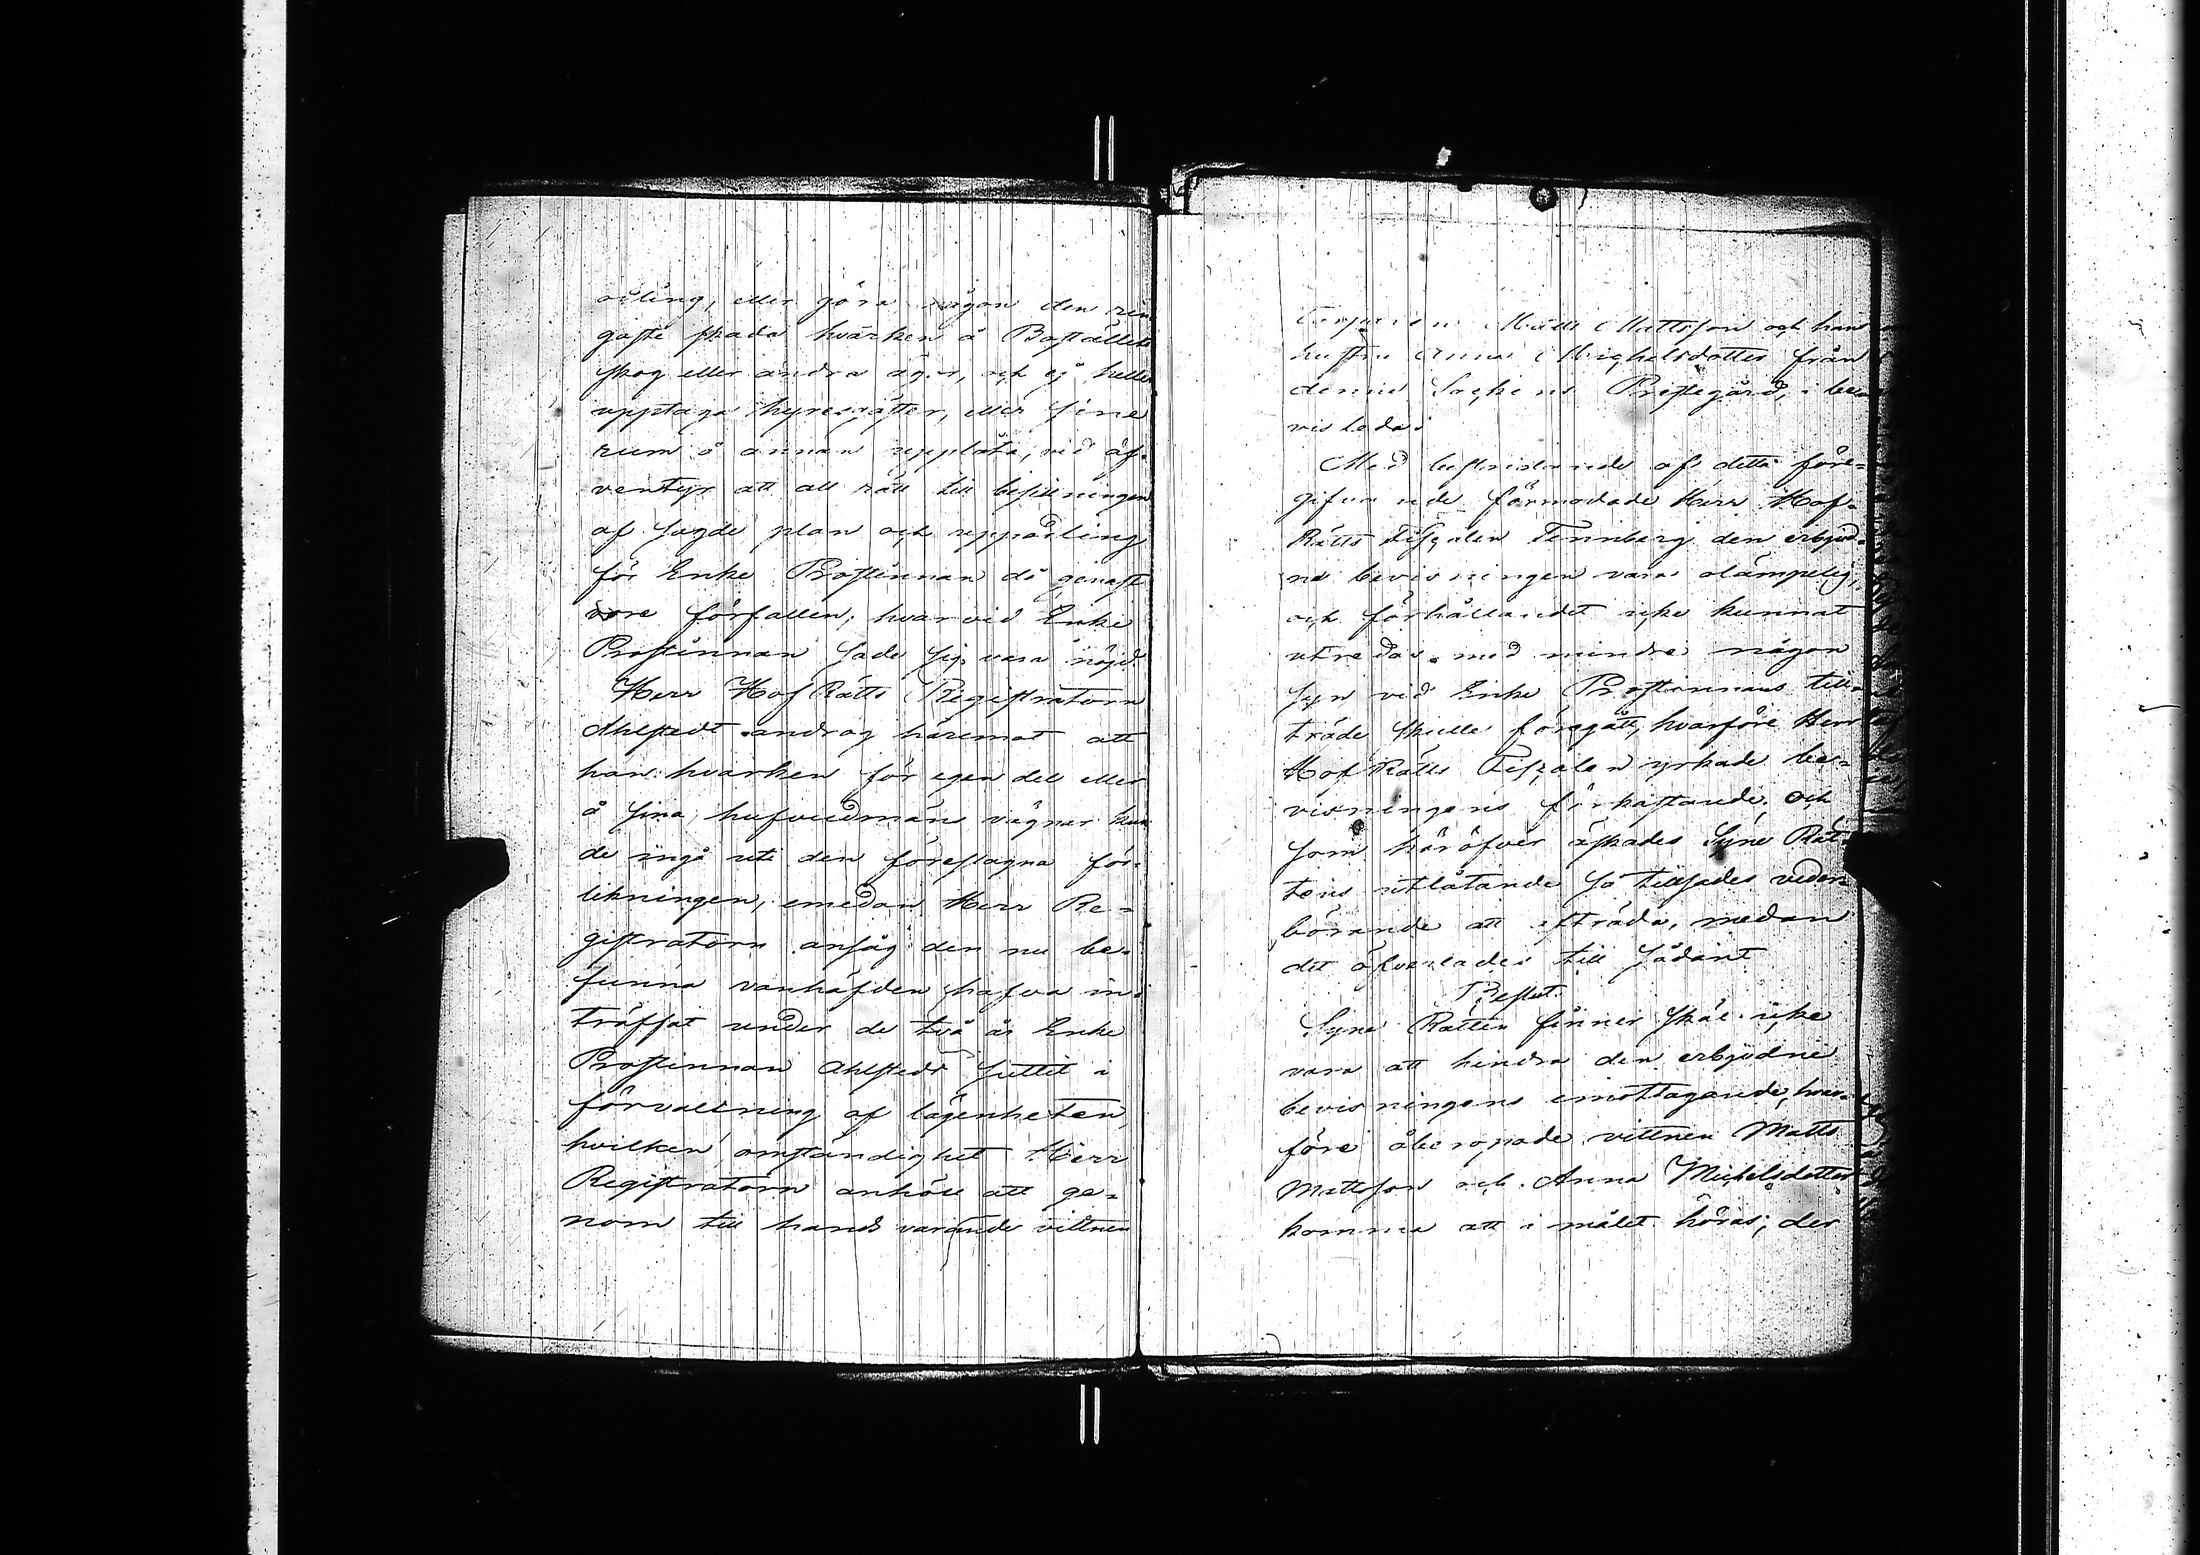 odling, eller göra någon den rin
gaste skada hvarken å Boställets
skog eller andra ägor, och ej heller
upptaga hyresrätter, eller sine
rum å annan upplåta, vid äf-
ventyr att all rätt till besittningen
af sagde plan och uppodling
för Enke Prostinnan då genast
vore förfallen; hvarvid Enke
Prostinnan sade sig vara nöjd.
Herr HofRätts Registratorn
Ahlstedt androg häremot att
han hvarken för egen del eller
å sina hufvudmäns vägnar kun
de ingå uti den föreslagna för-
likningen, emedan Herr Re-
gistratorn ansåg den nu be-
funna vanhäfden hafva in-
träffat under de två år Enke
Prostinnan Ahlstedt suttit i
förvaltning af lägenheten
hvilken omständighet Herr
Registratorn anhöll att ge-
nom till hands varande vittnen
Torparen Matts Mattsson och hans
hustru Anna Michelsdotter från
denne Sockens Prestegård, i be-
vis leda.
Med bestridande af detta före-
gifvande förmodade Herr Hof-
Rätts Fiscalen Tennberg den erbjud-
na bevisningen vara olämpelig,
och förhållandet icke kunnat
utredas med mindre någon
syn vid Enke Prostinnans till-
träde skulle föregått, hvarföre Herr
HofRätts Fiscalen yrkade be-
visningens förkastande. Och
som häröfver äskades Syne Rät-
tens utlåtande så tillsades veder-
börande att afträda, medan
det öfverlades till sådant
Beslut.
Syne Rätten finner skäl icke
vara att hindra den erbjudne
bevisningens emottagande, hvar-
före åberopade vittnen Matts
Mattsson och Anna Michelsdotter
komma att i målet höras; der